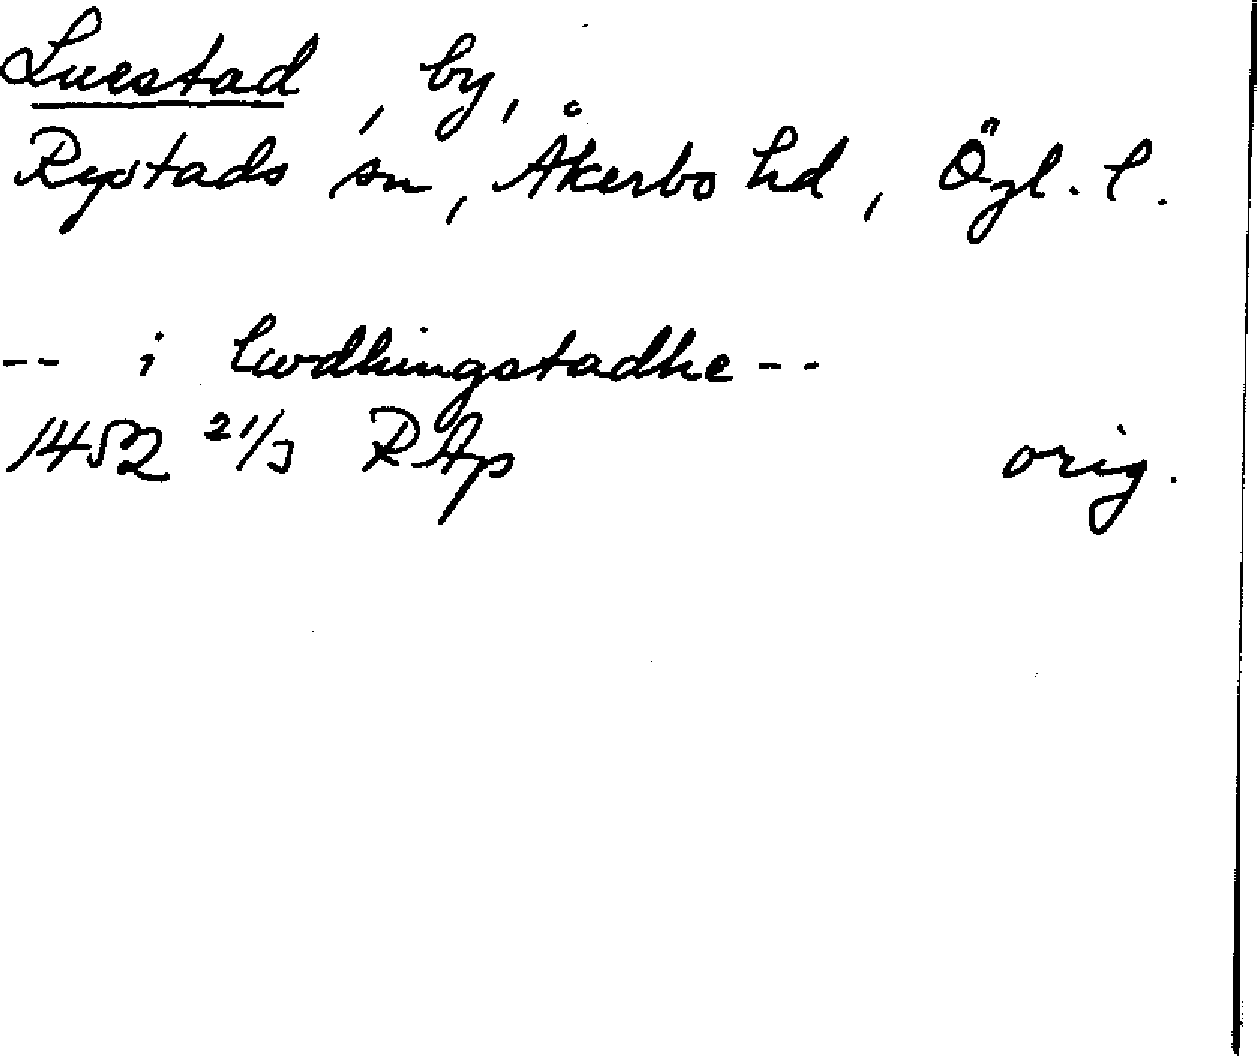 Luestad, by,
Rystads sn, Åkerbo hd, Ögl. l.
-- i lwdhingstadhe --
1452 21/3 RAp orig.